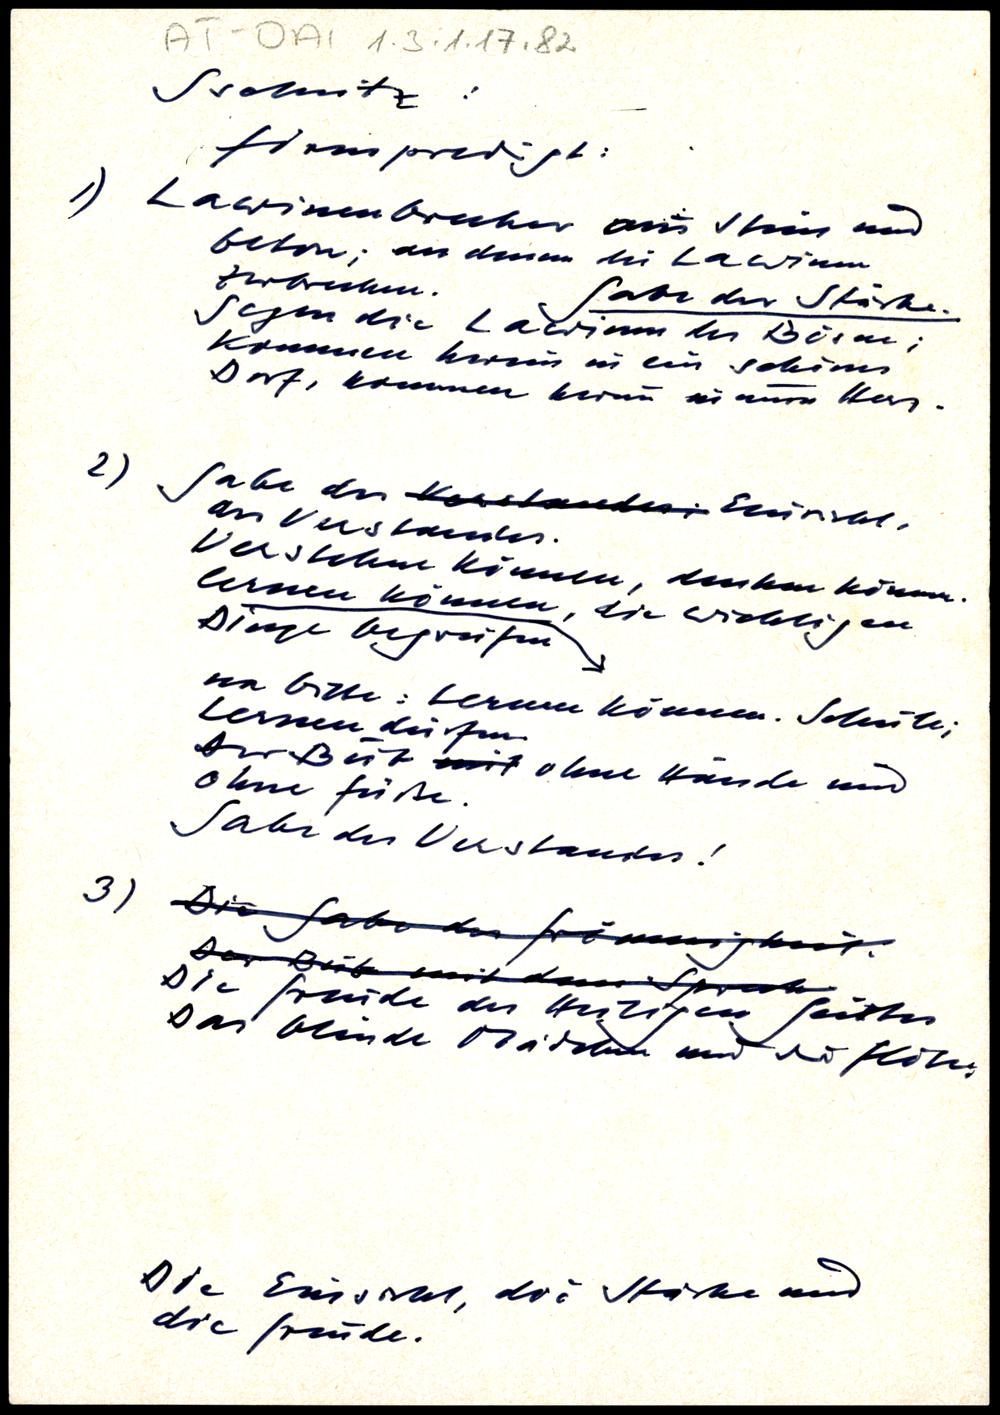 AT-OAI 1.3.1.17.82
Gschnitz :
Firmpredigt:
1) Lawinenbrecher aus Stein und
Beton; an denen die Lawinen
zerbrechen. Gabe der Stärke.
Gegen die Lawinen des Bösen;
Kommen herein in ein schönes
Dorf, kommen herein in unser Herz.
2) Gabe der Verstandes; Einsicht,
des Verstandes.
Verstehen können, denken können.
lernen können, die wichtigen
Dinge begreifen
na bitte: Lernen können. Schule;
Lernen dürfen.
Der Bub mit ohne Hände und
ohne Füße.
Gabe des Verstandes!
3) Die Gabe der Frömmigkeit.
Der Bub mit dem Sprach
Die Freude des Heiligen Geistes
Das blinde Mädchen und die Flöte;
Die Einsicht, die Stärke und
die Freude.